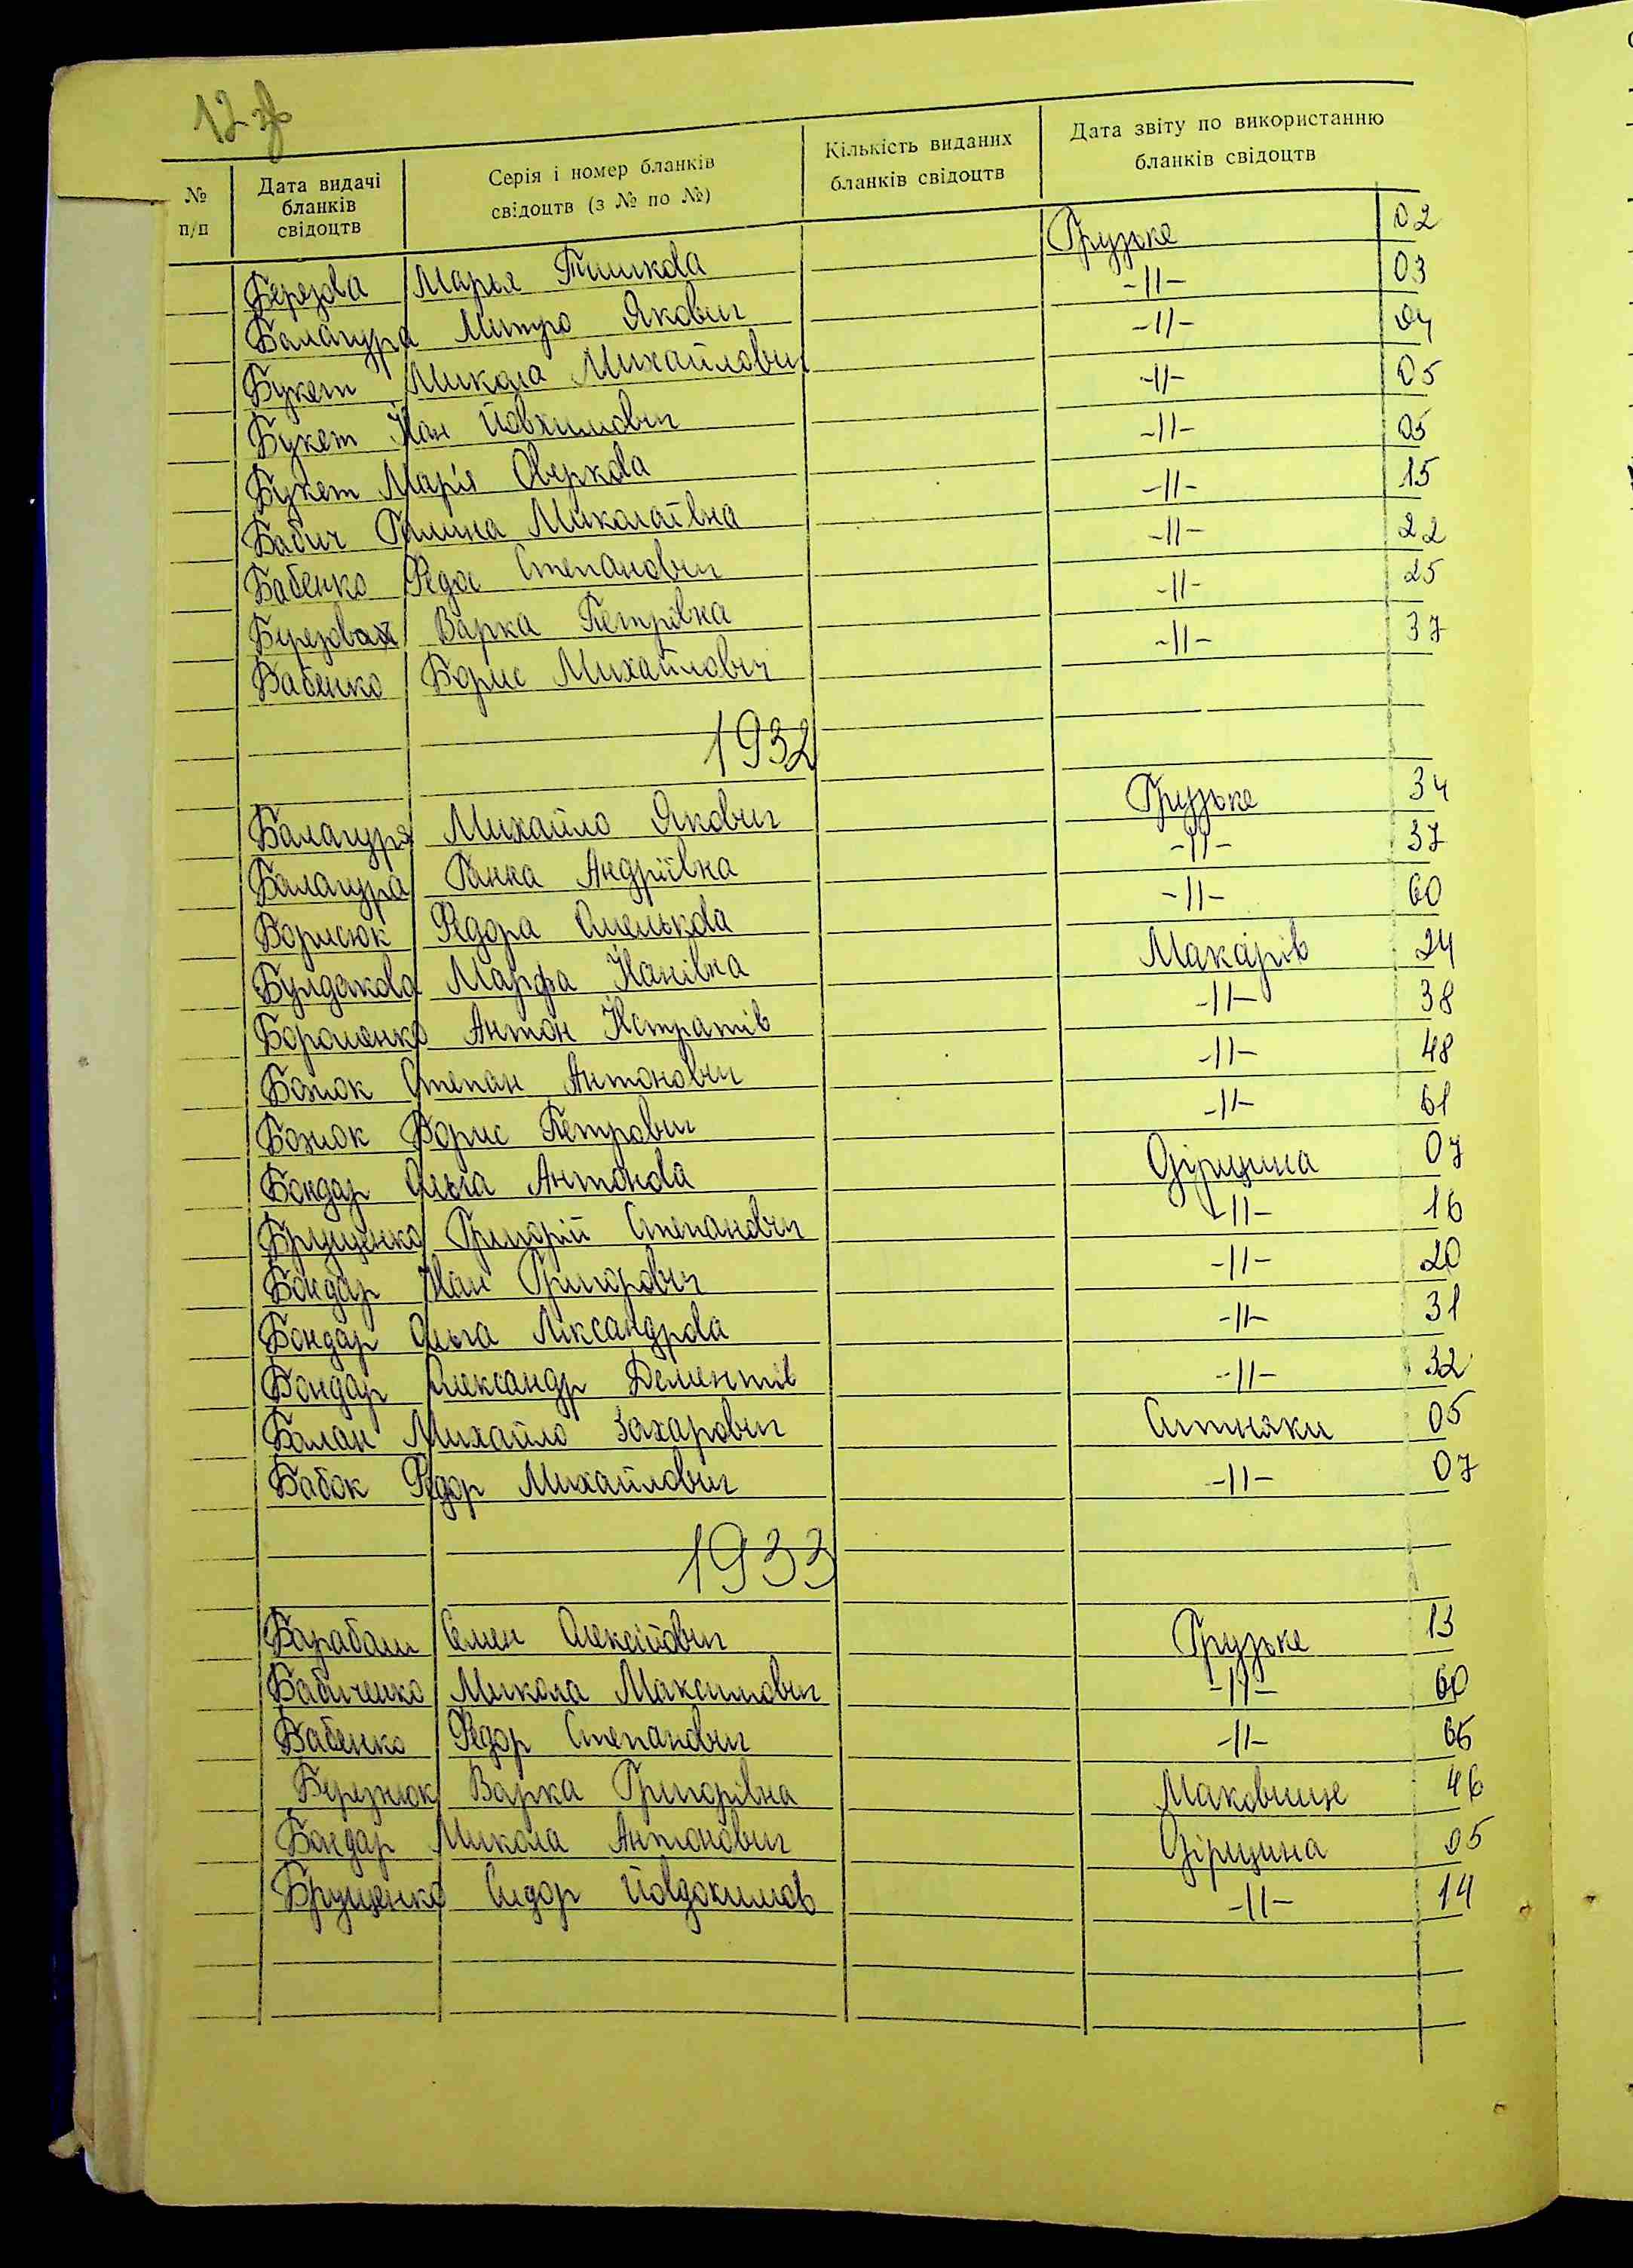 12 зв
№ п/п
Дата видачі бланків свідоцтв
Серія і номер бланків свідоцтв (з № по №)
Кількість виданих бланків свідоцтв
Дата звіту по використанню бланків свідоцтв
Березова Марья Тишкова Грузьке 02
Балагура Митро Якович -||- 03
Букет Микола Михайлович -||- 04
Букет Іван Йовхимович -||- 05
Букет Марія Оверкова -||- 05
Бабич Галина Миколаївна -||- 15
Бабенко Федос Степанович -||- 22
Березова Варка Петрівна -||- 25
Бабенко Борис Михайлович -||- 37
1932
Балагура Михайло Якович Грузьке 34
Балагура Ганка Андріївна -||- 37
Борисюк Федора Омелькова -||- 60
Булдакова Марфа Іванівна Макарів 24
Бороленко Антон Істратів -||- 38
Божок Степан Антонович -||- 48
Божок Борис Петрович -||- 61
Бондар Ольга Антонова Озірщина 07
Брущенко Григорій Степанович -||- 16
Бондар Іван Григорович -||- 20
Бондар Ольга Лександрова -||- 31
Бондар Олександр Дементів -||- 32
Балан Михайло Захарович Ситняки 05
Бабок Федор Михайлович -||- 07
1933
Барабаш Семен Олексійович Грузьке 13
Бабиченко Микола Максимович -||- 60
Бабенко Федор Степанович -||- 65
Березнюк Варка Григорівна Маковище 46
Бондар Микола Антонович Озірщина 05
Брущенко Сидор Йовдокимов -||- 14